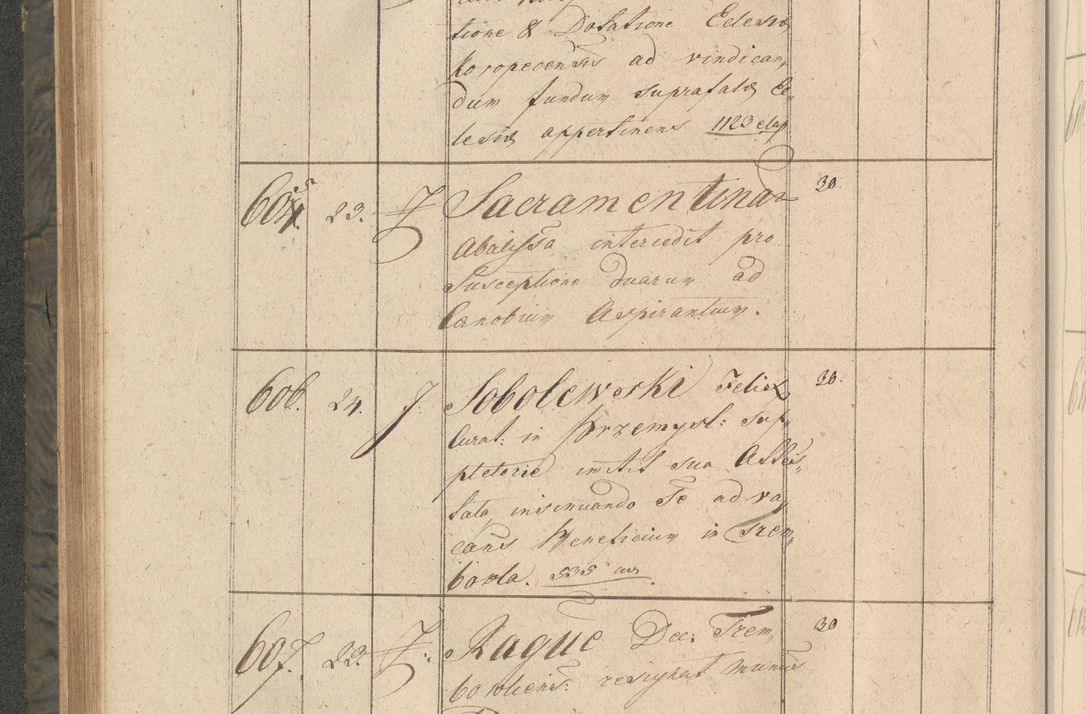 tione & Dotatione Eclesiæ
Koropecensis ad vindican„
dum fundum suprafatæ Ec„
lesiæ appertinens 1123 elap
605. 23. J Sacramentinar 30.
Abatissa intercedit pro
Susceptione duarum ad
Cœnobium Aspirantium.
606. 24. J. Sobolewski Felix 30.
Curat: in Przemysl: Sup„
pletorie mittit sua Attes„
tata insinuando Se ad va„
cans Beneficium in Trem„
bowla. 535 aus
607. 22. J. Rague Dec: Trem„ 30
bowliens: resignat munus